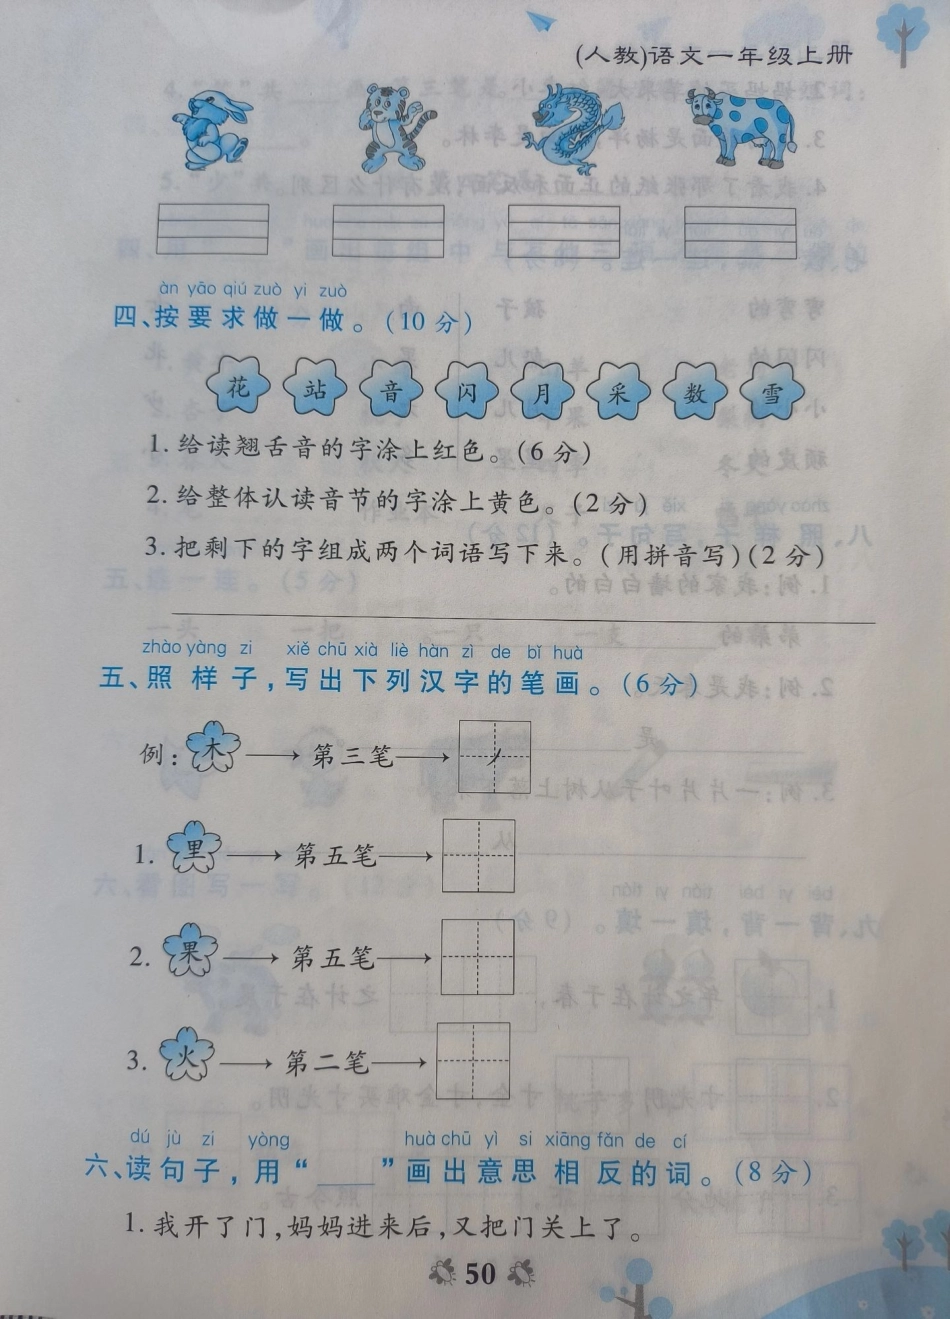 (人教)语文一年级上册
àn yāo qiú zuò yi zuò
四、按要求做一做。(10分)
花 站 音 闪 月 采 数 雪
1. 给读翘舌音的字涂上红色。(6分)
2. 给整体认读音节的字涂上黄色。(2分)
3. 把剩下的字组成两个词语写下来。(用拼音写)(2分)
zhào yàng zi xiě chū xià liè hàn zì de bǐ huà
五、照样子,写出下列汉字的笔画。(6分)
例: 木 第三笔 丿
1. 里 第五笔
2. 果 第五笔
3. 火 第二笔
dú jù zi yòng huà chū yì si xiāng fǎn de cí
六、读句子,用“___”画出意思相反的词。(8分)
1. 我开了门,妈妈进来后,又把门关上了。
50